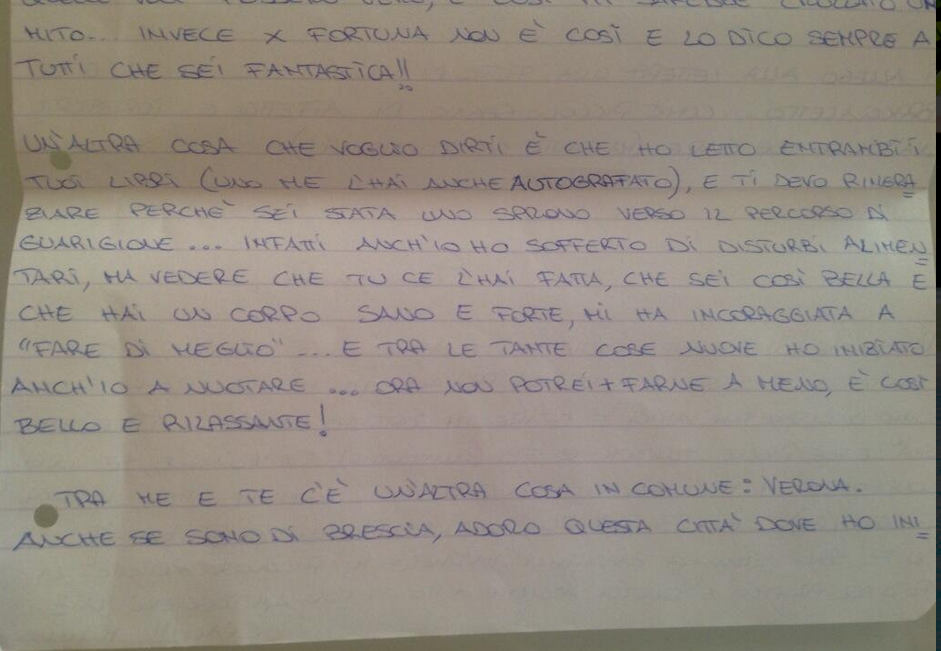 MITO... INVECE X FORTUNA NON È COSÌ E LO DICO SEMPRE A
TUTTI CHE SEI FANTASTICA!!
UN'ALTRA COSA CHE VOGLIO DIRTI È CHE HO LETTO ENTRAMBI I
TUOI LIBRI (UNO ME L'HAI ANCHE AUTOGRAFATO), E TI DEVO RINGRA
ZIARE PERCHÈ SEI STATA UNO SPRONO VERSO IL PERCORSO DI
GUARIGIONE... INFATTI ANCH'IO HO SOFFERTO DI DISTURBI ALIMEN
TARI, MA VEDERE CHE TU CE L'HAI FATTA, CHE SEI COSÌ BELLA E
CHE HAI UN CORPO SANO E FORTE, MI HA INCORAGGIATA A
"FARE DI MEGLIO"... E TRA LE TANTE COSE NUOVE HO INIZIATO
ANCH'IO A NUOTARE... ORA NON POTREI + FARNE A MENO, È COSÌ
BELLO E RILASSANTE!
TRA ME E TE C'È UN'ALTRA COSA IN COMUNE: VERONA.
ANCHE SE SONO DI BRESCIA, ADORO QUESTA CITTÀ DOVE HO INI